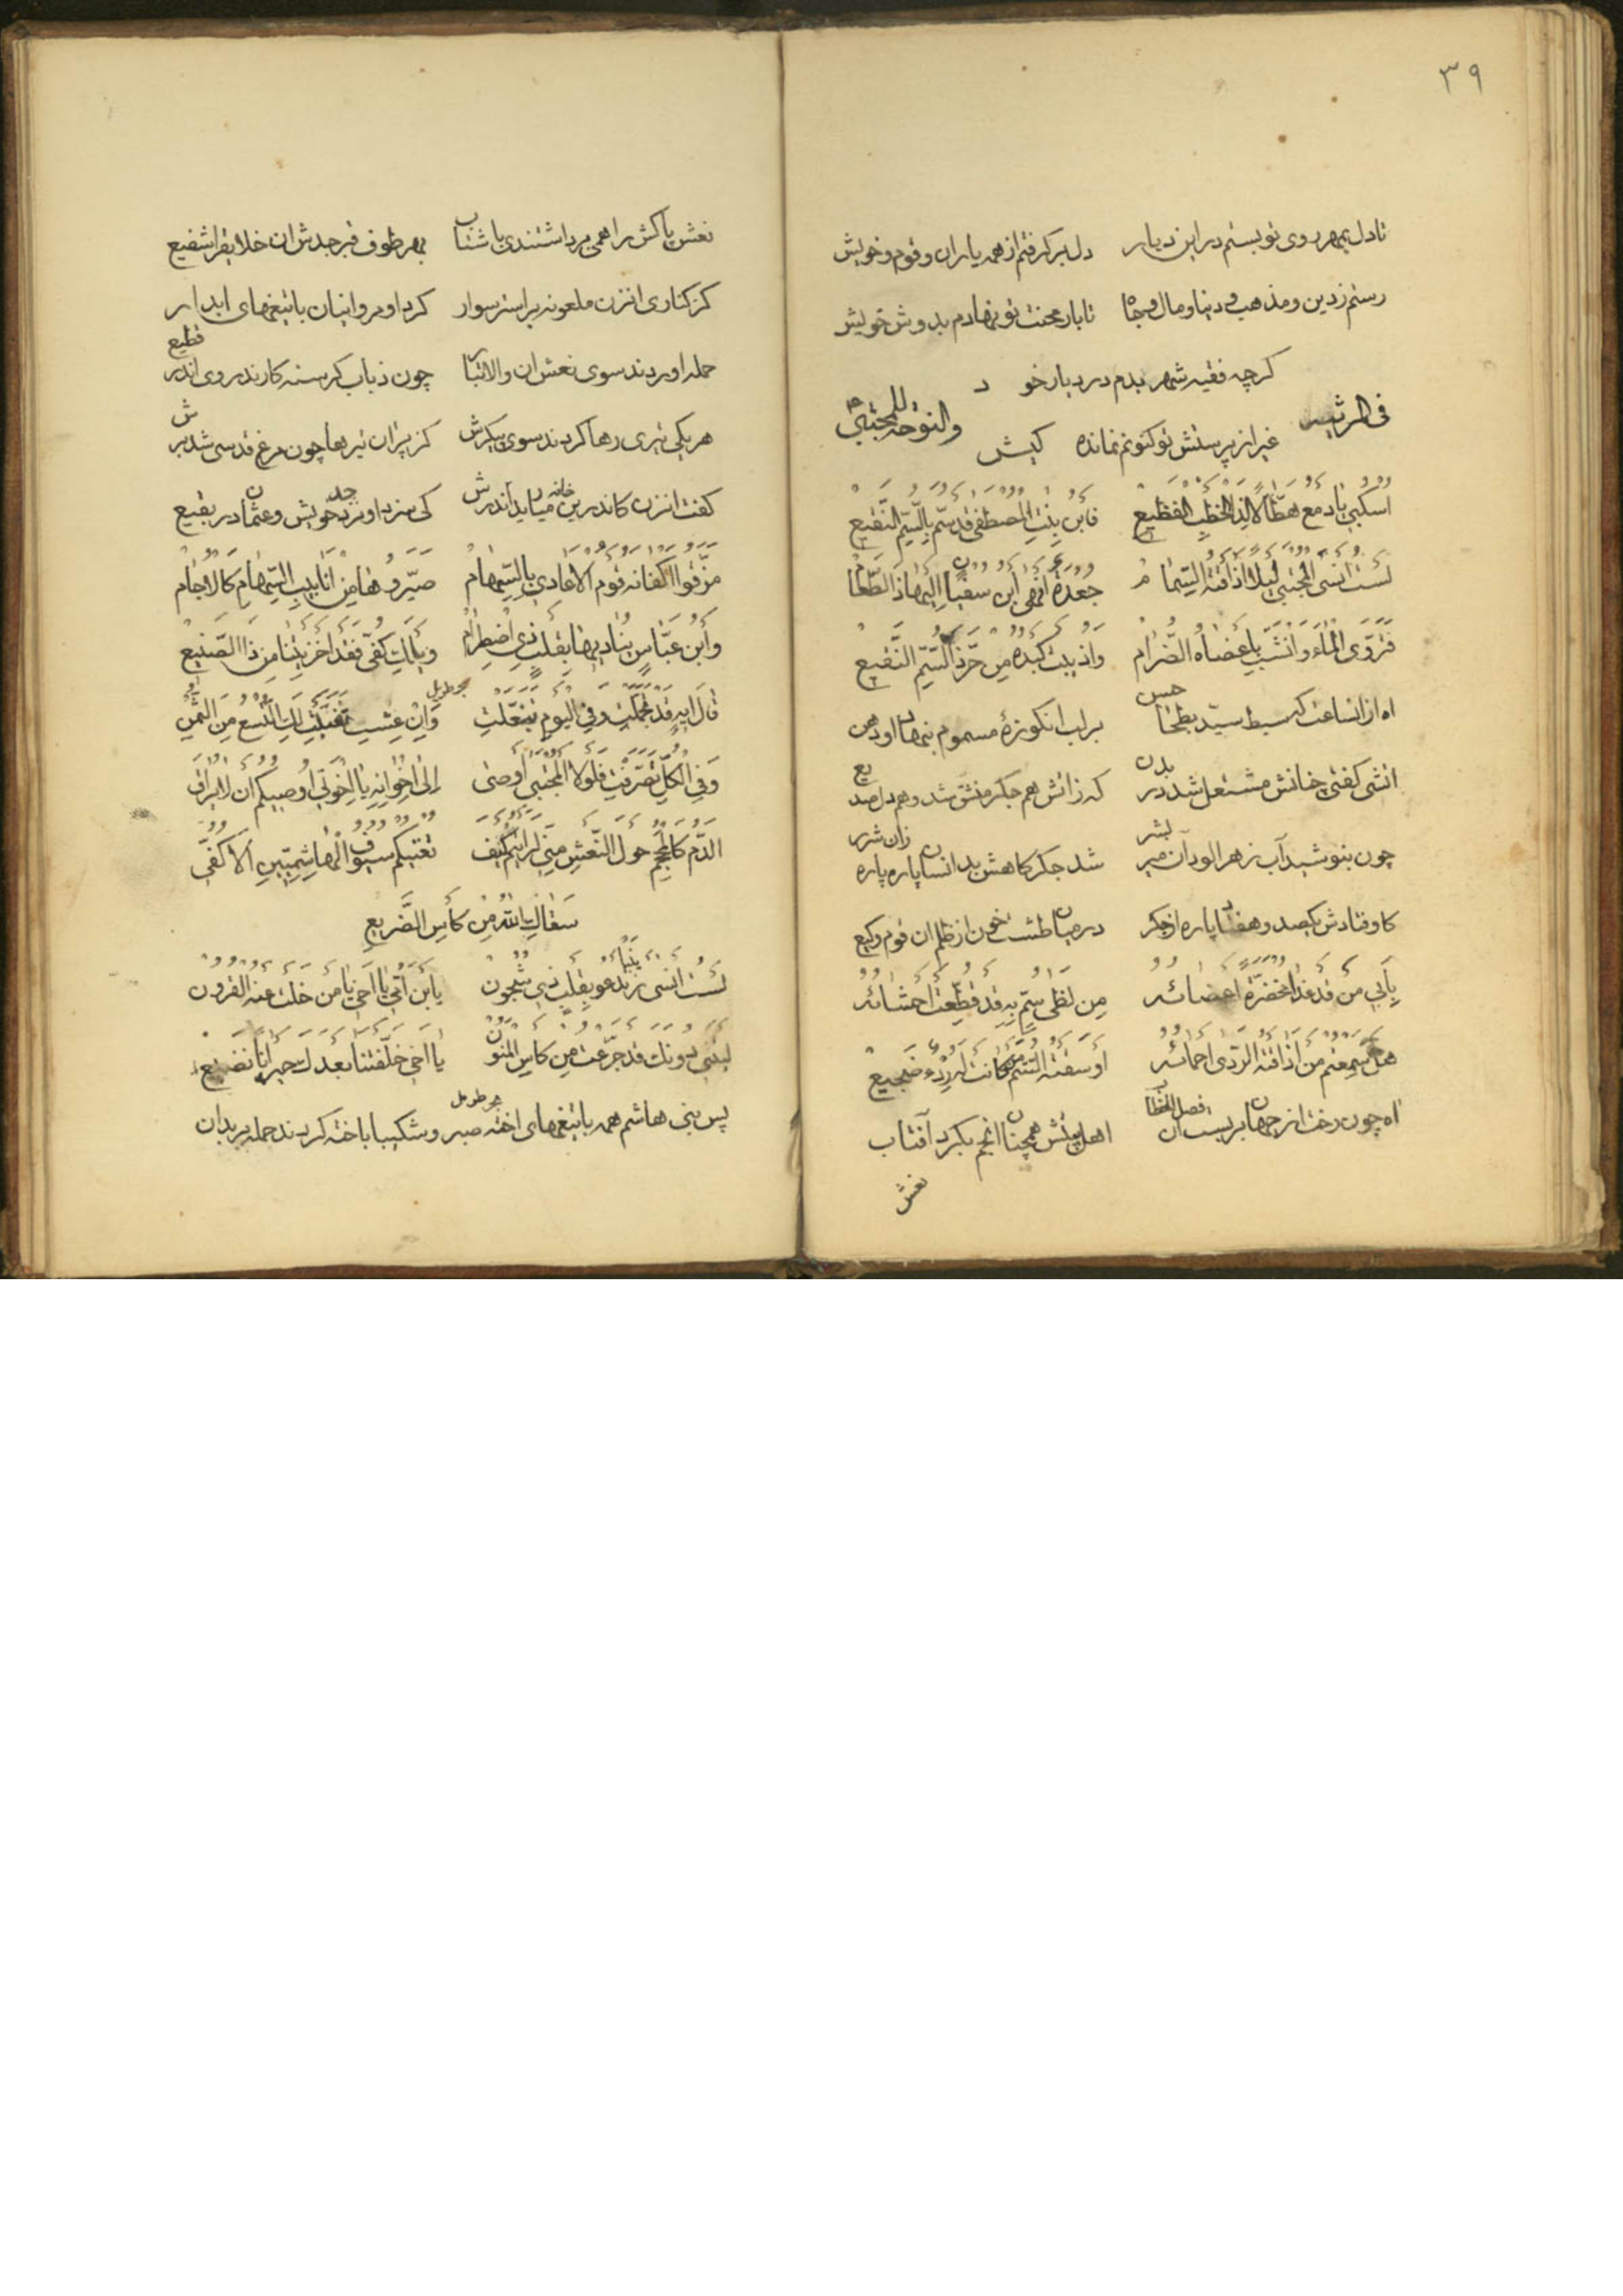 ٣٩
تادل بمهر روی تو بستم در این دیار دل برکرفتم از همه یاران و قوم و خویش
رستم ز دین و مذهب و دنیا و مال و جاه تا بار محنت تو نهادم بدوش خویش
کرچه فقیه شهر بدم در دیار خود
غیر از پرستش تو کنونم نمانده کیش
فی المرثیه والنوحه للمجتبی
اسکبی یا دمع هطّالا لذا الخطب الفظیع فابن بنت المصطفی قد سمّ بالسّم النّقیع
لست انسی المجتبی لیلا اذاقته السّمام جعدة افهی ابن سفیان الیها ذا الطّعام
فتروّی الماء وانشبّ باعضاه الضّرام واذیبت کبده من حرّ ذا السّمّ النّقیع
اه از انساعت که سبط سیّد بطحا حسن بر لب ان کوزهٔ مسموم بنهاد او دهن
اتشی کفتی بجانش مشتعل شد در بدن که زاتش هم جکر منشق شد و هم دل صدیع
چون بنوشید آب زهر الود آن میر بشر شد جکرکاهش بدانسان پاره پاره زان شرر
کاوفتادش یکصد و هفتاد پاره از جکر در میان طشت خون از ظلم ان قوم وکیع
بابی من قد غدا مخضرّة اعضائه من لظی سمّ به قد قطّعت احشائه
هل سمعتم من اذاقته الرّدی احمائه او سقته السّمّ من کانت له ضجیع
اه چون رخت از جهان بربست ان فصل الخطاب اهل بیتش همچنان انجم بکرد آفتاب
نعش
نعش پاکش را همی برداشتندی با شتاب بهر طوف قبر جدش ان خلایق را شفیع
کز کناری انزن ملعونه بر استر سوار کرد او مروانیان با تیغهای ابدار
حمله اوردند سوی نعش ان والا تبار چون ذیاب کرسنه کارند روی اندر قطیع
هر یکی تیری رها کردند سوی پیکرش کز پران تیرها چون مرغ قدسی شد برش
کفت انزن کاندرین خانه میاید اندرش کی سزد او نزد جد خویش و عثمان در بقیع
مزّقوا اکفانه قوم الاعادی بالسّهام صیّروها من انابیب السّهام کالاجام
وابن عبّاس ینادیها بقلب ذی اضطرام ویّا لک کفّی فقد اخزیتنا من ذا الصّنیع
قال ایه قد تجمّلت وفی الیوم تبغّلت وان عشت تفیّلت لک التّسع من الثّمن
وفی الکلّ تصرّفت فلولا المجتبی اوصی الی اخوانه یا اخوتی اوصیکم ان لا یراق
الدّم کالحجم حول النّعش منّی لرایتم کیف تغتبکم سیوف الهاشمیّین الا کفّی
سقاک الله من کأس الضّریع
لست انسی زینبا تدعو بقلب ذی شجون یابن امّی یا اخی یا من خلت عنه القرون
لیتنی دونک قد جرّعت من کاس المنون یا اخی خلّفتنا بعدک حیرانا نضیع
پس بنی هاشم همه با تیغهای اخته صبر و شکیبا باخته کردند حمله بر بدان